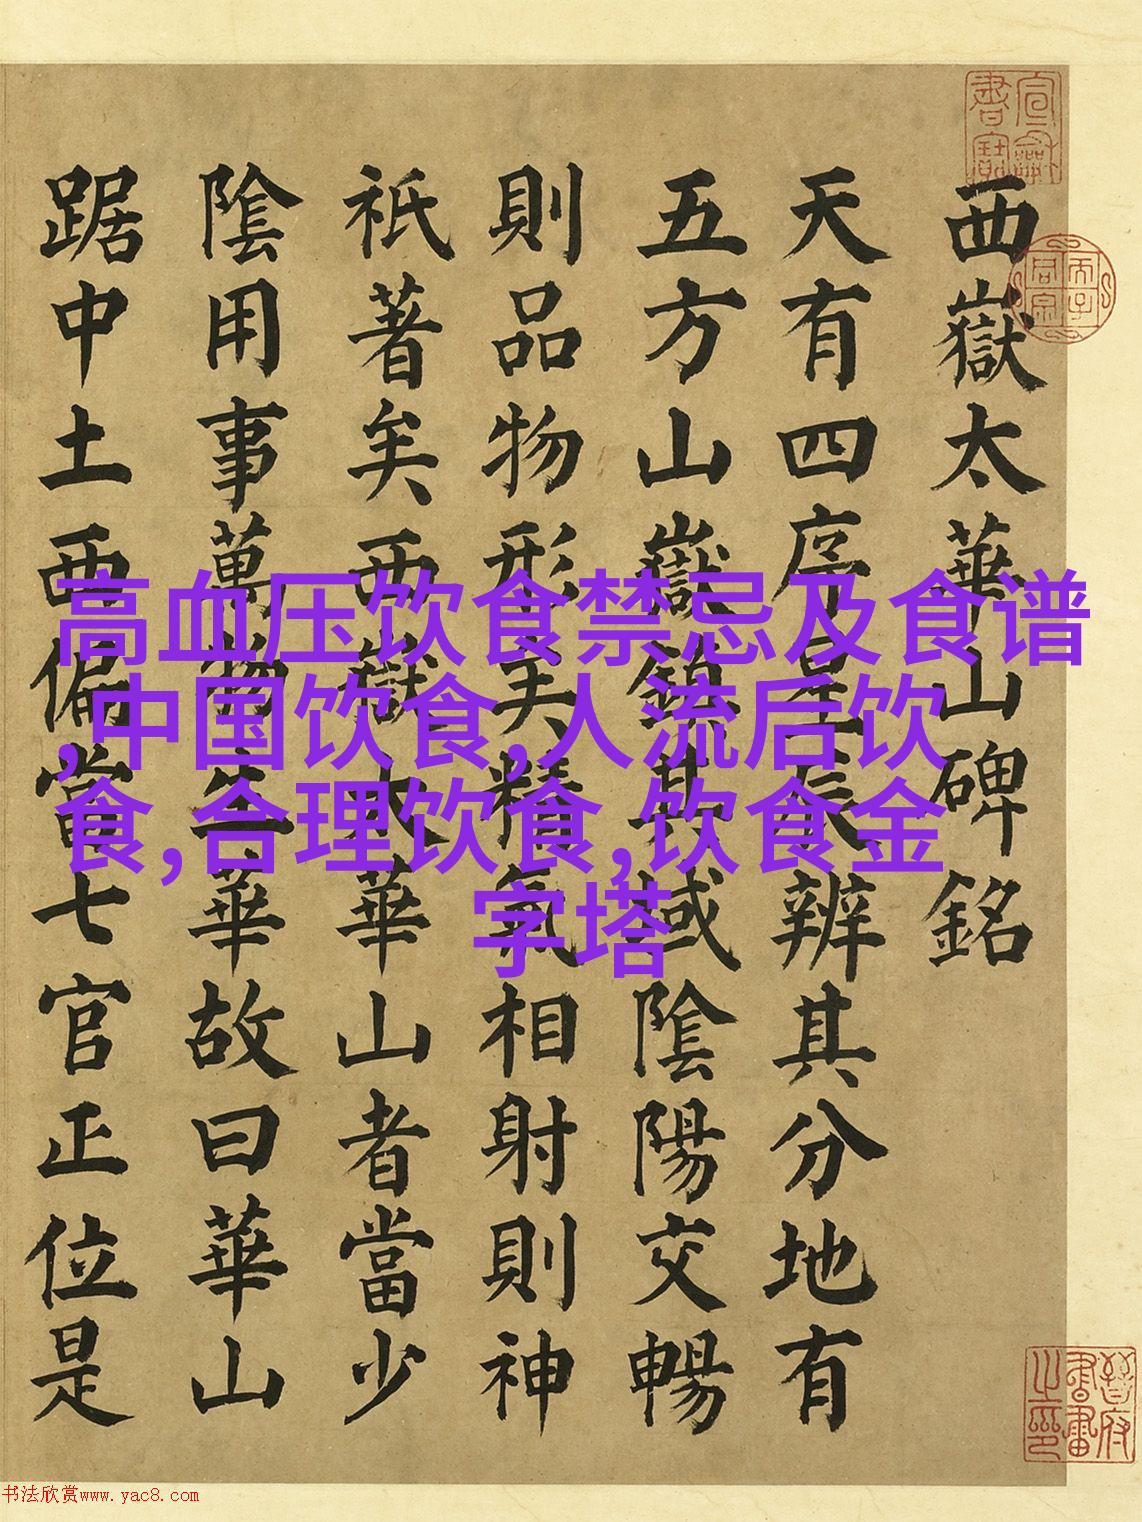 西嶽太華山碑銘
天有四序星辰辨其分地有
五方山嶽鎮其域陰陽交暢
則品物形矣精氣相射則神
祇著矣西嶽太華山者當少
陰用事萬物生華故曰華山
踞中土西偏當七官正位是
高血压饮食禁忌及食谱
,中国饮食,人流后饮
食,合理饮食,饮食金
字塔
書府
之印
书法欣赏www.yac8.com